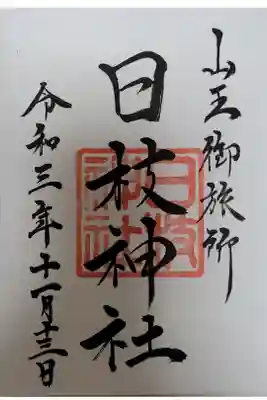 山王御旅所
日枝神社
日枝神社
令和三年十一月十三日